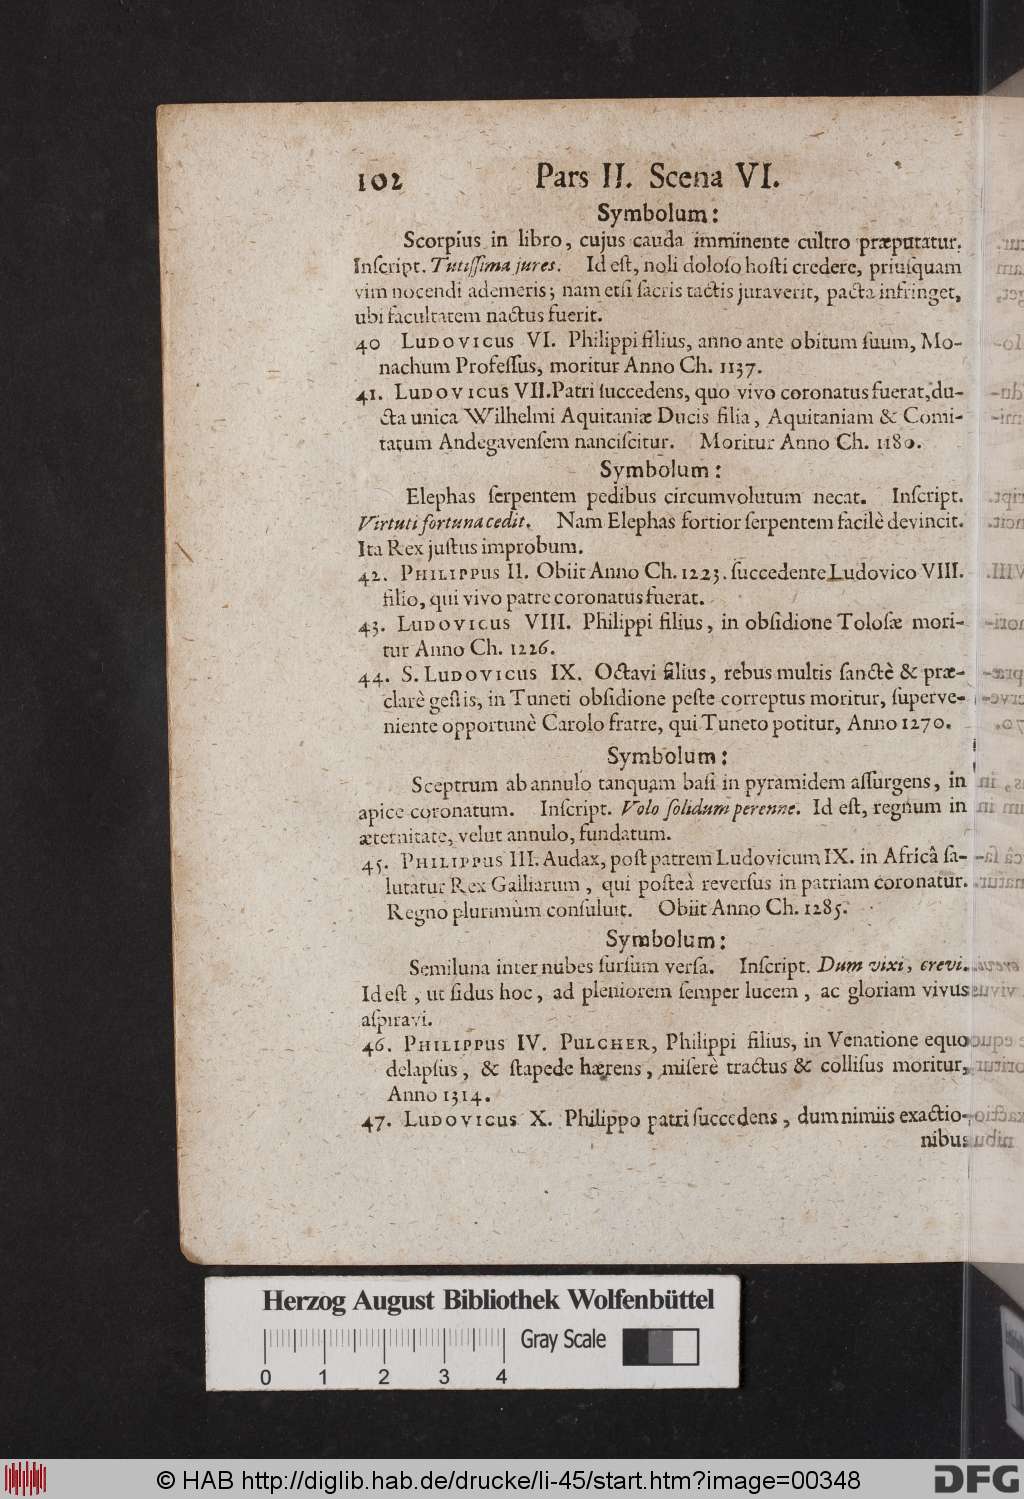 102 Pars II. Scena VI.
Symbolum:
Scorpius in libro, cujus cauda imminente cultro præputatur.
Inſcript. Tutiſſima jures. Id eſt, noli doloſo hoſti credere, priuſquam
vim nocendi ademeris; nam etſi ſacris tactis juraverit, pacta infringet,
ubi facultatem nactus fuerit.
40 LUDOVICUS VI. Philippi filius, anno ante obitum ſuum, Mo-
nachum Profeſſus, moritur Anno Ch. 1137.
41. LUDOVICUS VII. Patri ſuccedens, quo vivo coronatus fuerat, du-
cta unica Wilhelmi Aquitaniæ Ducis filia, Aquitaniam & Comi-
tatum Andegavenſem nanciſcitur. Moritur Anno Ch. 1180.
Symbolum:
Elephas ſerpentem pedibus circumvolutum necat. Inſcript.
Virtuti fortuna cedit. Nam Elephas fortior ſerpentem facilè devincit.
Ita Rex juſtus improbum.
42. PHILIPPUS II. Obiit Anno Ch. 1223. ſuccedente Ludovico VIII.
filio, qui vivo patre coronatus fuerat.
43. LUDOVICUS VIII. Philippi filius, in obſidione Toloſæ mori-
tur Anno Ch. 1226.
44. S. LUDOVICUS IX. Octavi filius, rebus multis ſanctè & præ-
clarè geſtis, in Tuneti obſidione peſte correptus moritur, ſuperve-
niente opportunè Carolo fratre, qui Tuneto potitur, Anno 1270.
Symbolum:
Sceptrum ab annulo tanquam baſi in pyramidem aſſurgens, in
apice coronatum. Inſcript. Volo ſolidum perenne. Id eſt, regnum in
æternitate, velut annulo, fundatum.
45. PHILIPPUS III. Audax, poſt patrem Ludovicum IX. in Africâ ſa-
lutatur Rex Galliarum, qui poſteà reverſus in patriam coronatur.
Regno plurimùm conſuluit. Obiit Anno Ch. 1285.
Symbolum:
Semiluna inter nubes ſurſum verſa. Inſcript. Dum vixi, crevi.
Id eſt, ut ſidus hoc, ad pleniorem ſemper lucem, ac gloriam vivus
aſpiravi.
46. PHILIPPUS IV. PULCHER, Philippi filius, in Venatione equo
delapſus, & ſtapede hærens, miſerè tractus & colliſus moritur,
Anno 1314.
47. LUDOVICUS X. Philippo patri ſuccedens, dum nimiis exactio-
nibus
Herzog August Bibliothek Wolfenbüttel
Gray Scale
0 1 2 3 4
© HAB http://diglib.hab.de/drucke/li-45/start.htm?image=00348
DFG